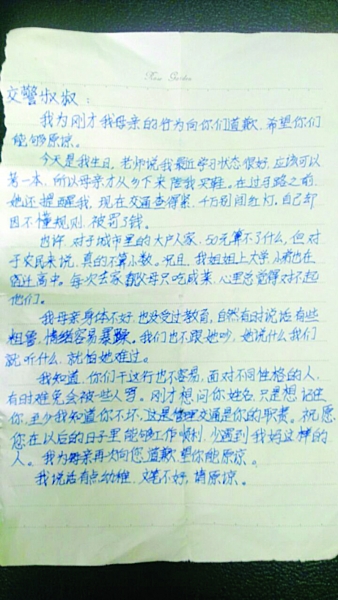 交警叔叔：
我为刚才我母亲的行为向你们道歉，希望你们
能够原谅。
今天是我生日，老师说我最近学习状态很好，应该可以
第一本，所以母亲才从乡下来陪我买鞋。在过马路之前，
她还提醒我，现在交通查得紧，千万别闯红灯。自己却
因不懂规则，被罚了钱。
也许，对于城市里的大户人家，50元算不了什么，但对
于农民来说，真的不算小数。况且，我姐姐上大学，小弟也在
宿迁高中。每次去家都父母只吃咸菜，心里总觉得对不起
他们。
我母亲身体不好，也没受过教育，自然有时说话有些
粗鲁，情绪容易暴躁。我们也不跟她吵，她说什么我们
就听什么，就怕她难过。
我知道，你们干这行也不容易，面对不同性格的人，
有时难免会被些人骂。刚才想问你姓名，只是想记住
你，至少我知道你不坏，这是管理交通是你的职责。祝愿
您在以后的日子里能够工作顺利，少遇到我妈这样的
人。我为母亲再次向您道歉，望你能原谅。
我说话有点幼稚，文笔不好，请原谅。